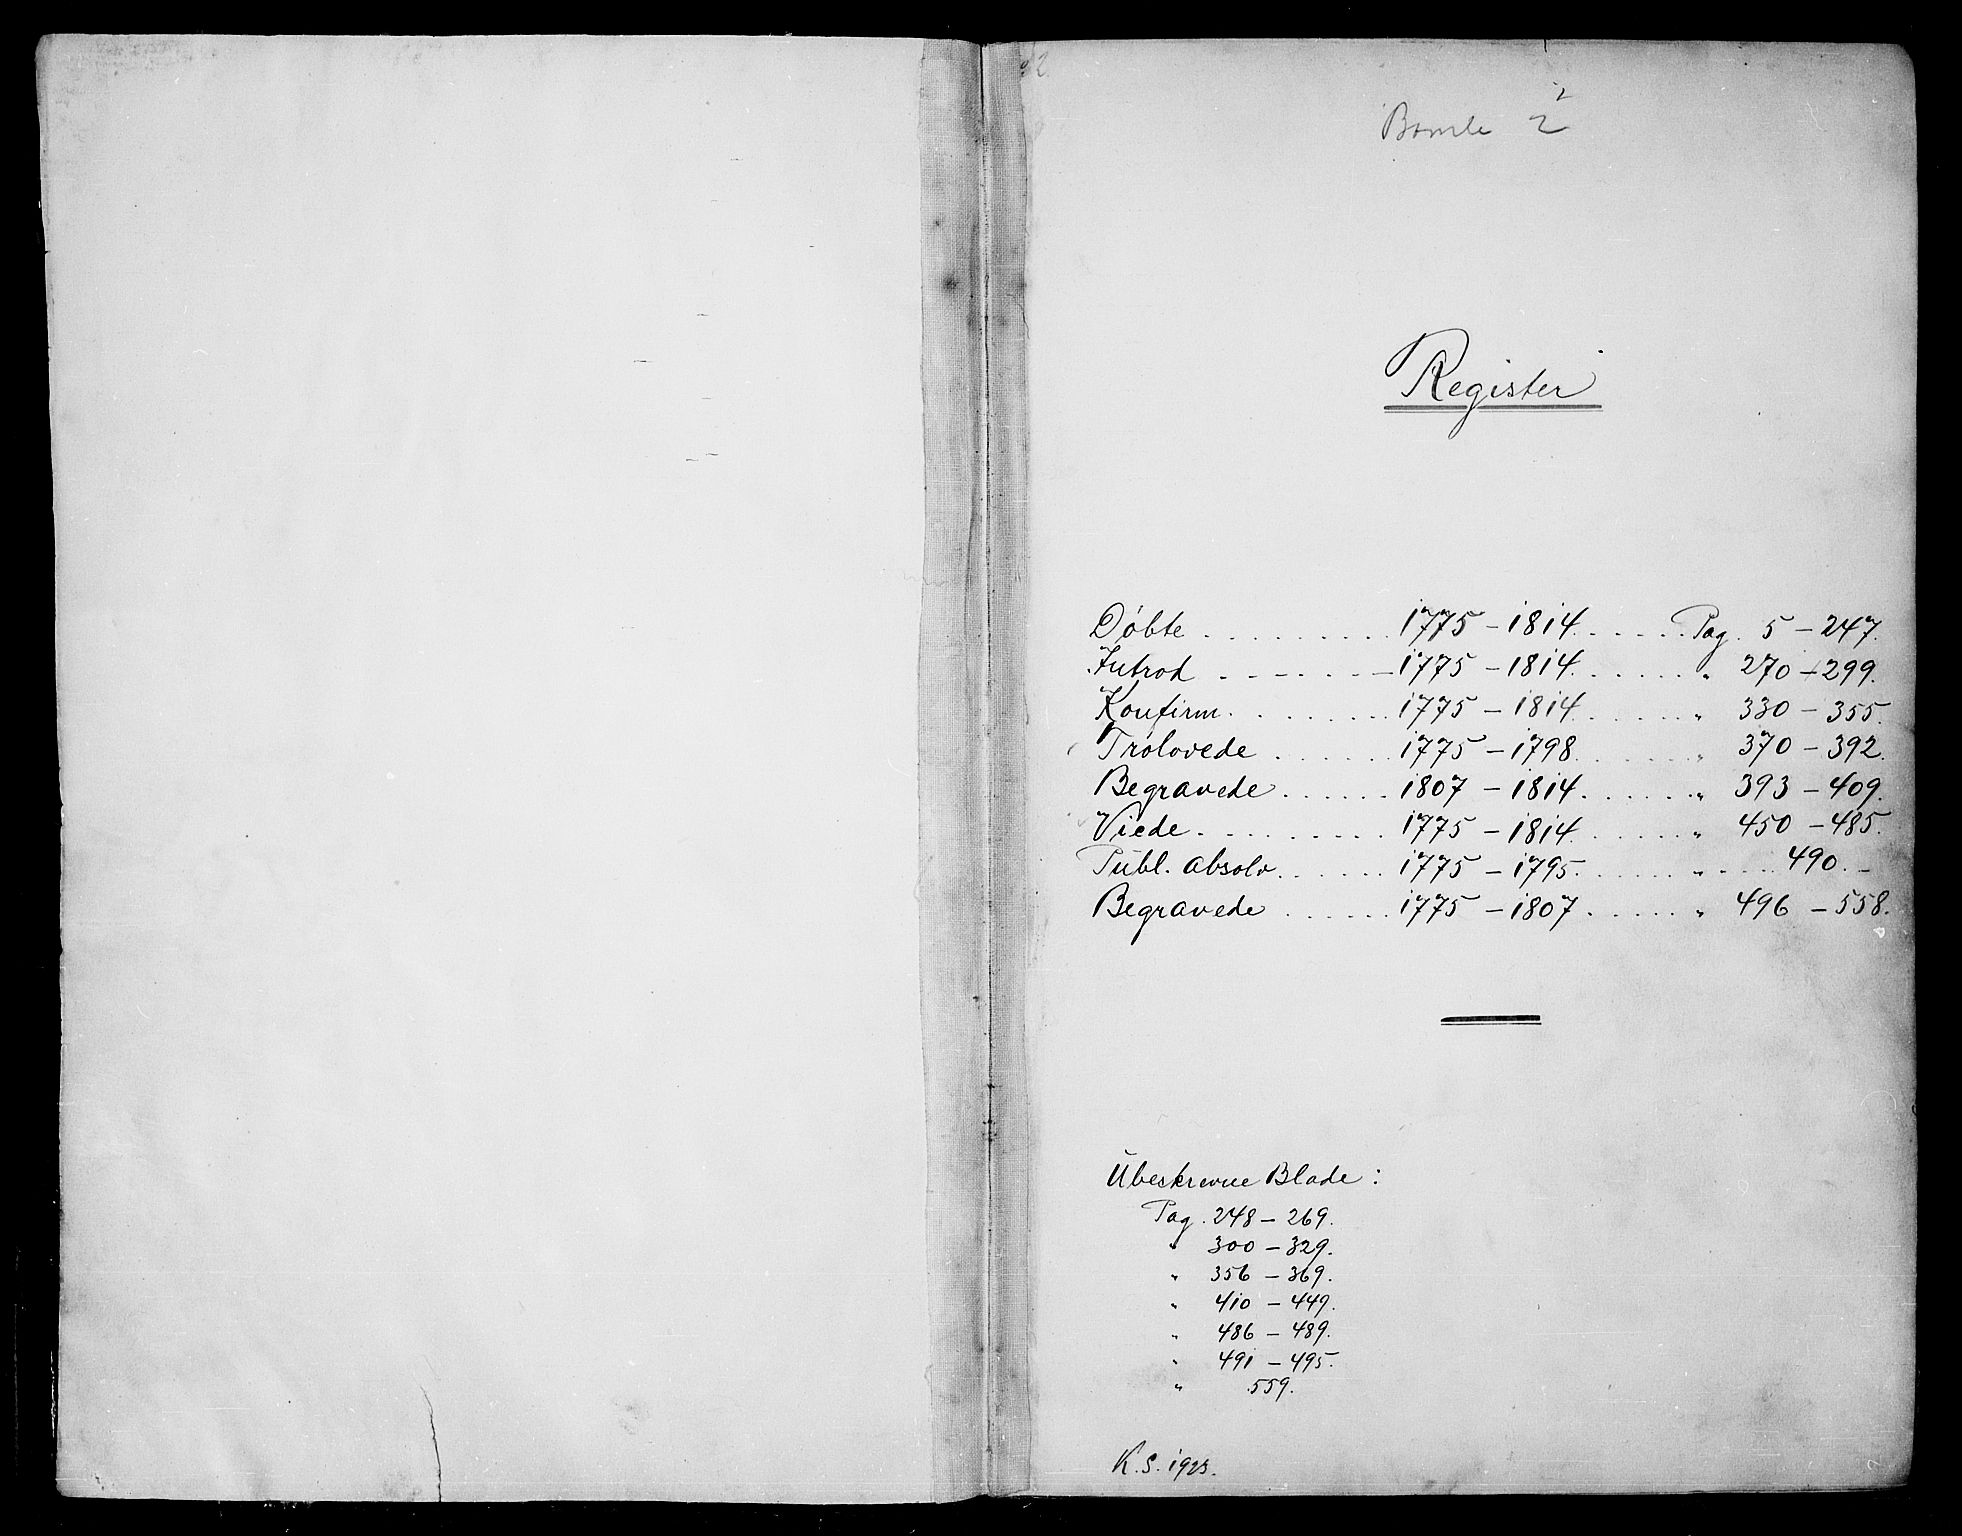 Bamle 2
Register
Døbte . . . . . . . . . 1775 – 1814 . . . . . Pag. 5 – 247.
Introd . . . . . . . . 1775 – 1814 . . . . . . " 270 – 299.
Konfirm. . . . . . . . 1775 – 1814 . . . . . . " 330 – 355.
Trolovede . . . . . . 1775 – 1798 . . . . . . " 370 – 392.
Begravede . . . . . . 1807 – 1814 . . . . . . " 393 – 409.
Viede . . . . . . . . . 1775 – 1814 . . . . . . " 450 – 485.
Publ. absolv. . . . . . 1775 – 1795 . . . . . . " . . . . 490. –
Begravede . . . . . . 1775 – 1807 . . . . . . " 496 – 558.
Ubeskrevne Blade :
Pag. 248 – 269.
" 300 – 329.
" 356 – 369.
" 410 – 449.
" 486 – 489.
" 491 – 495.
" 559.
K. S. 1923.